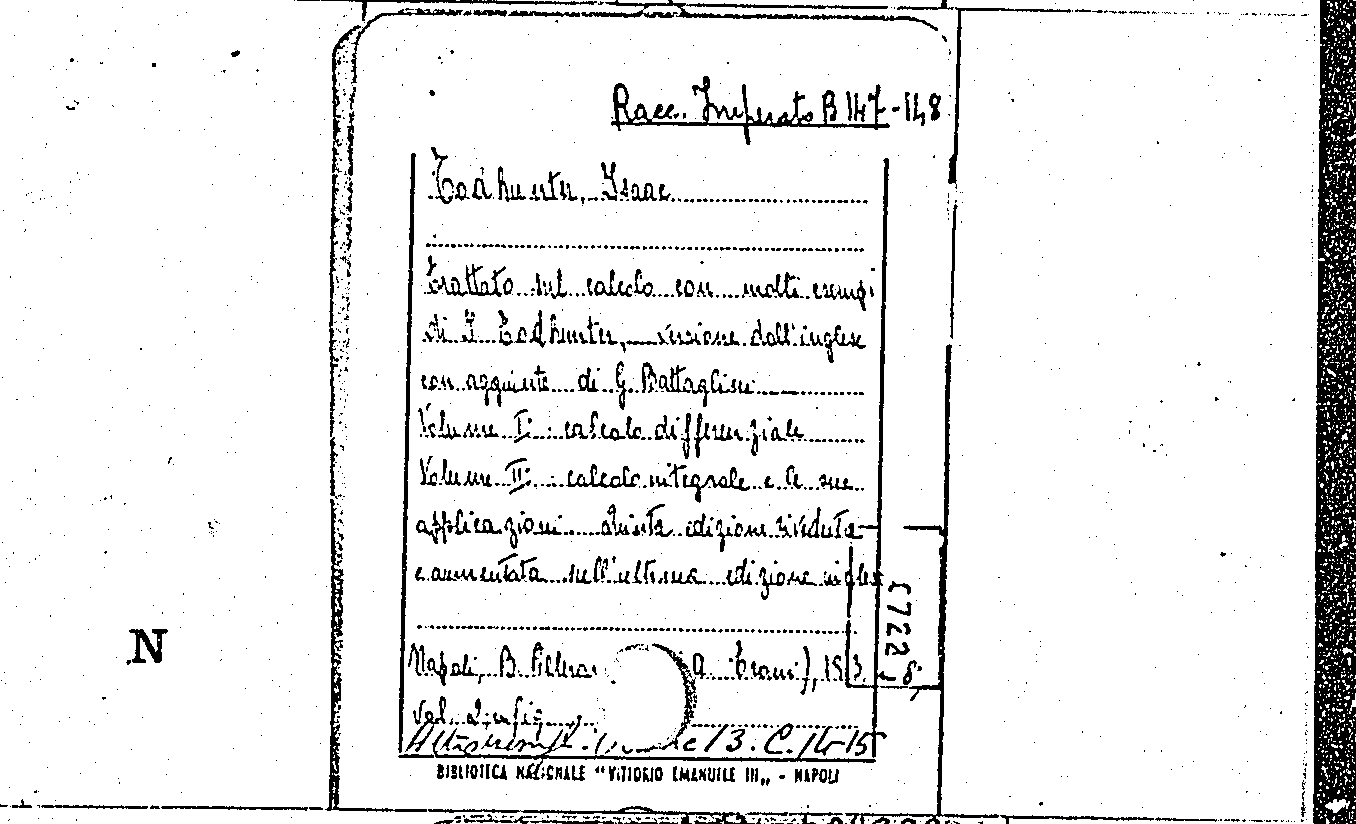 Racc. Imperato B 147-148
Todhunter, Isaac
Trattato sul calcolo con molti esempi
di I. Todhunter, versione dall'inglese
con aggiunte di G. Battaglini
Volume I: calcolo differenziale
Volume II: calcolo integrale e le sue
applicazioni. Quinta edizione riveduta
e aumentata sull'ultima edizione inglese
Napoli, B. Pellera A. Trani),
Vol. 2 in fig.
B. C. 14-15
BIBLIOTECA NAZIONALE "VITTORIO EMANUELE III" - NAPOLI
57228
N